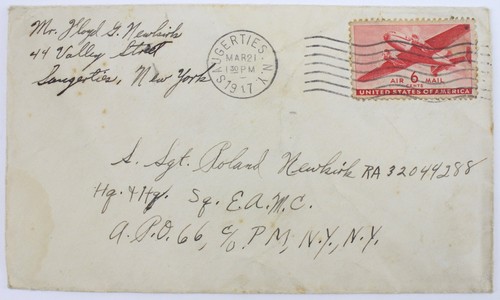 Mr. Lloyd G. Newkirk
44 Valley Street
Saugerties, New York
SAUGERTIES, N.Y.
MAR 21
1 30 PM
1947
6
CENTS
AIR MAIL
UNITED STATES OF AMERICA
S. Sgt. Roland Newkirk RA 32044288
Hq. & Hq. Sq. E.A.M.C.
A.P.O. 66, c/o P M, N.Y., N.Y.